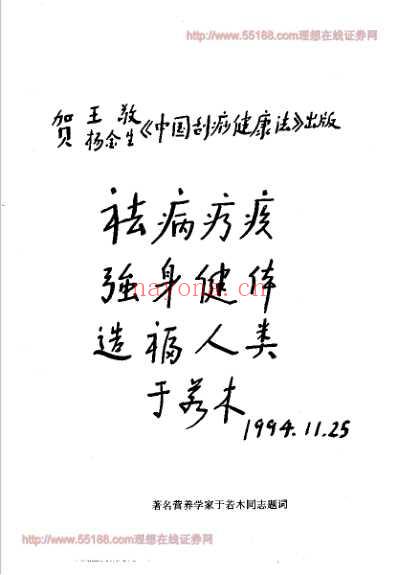 http://www.55188.com理想在线证券网
贺 王敬 杨金生《中国刮痧健康法》出版
祛病疗疾
强身健体
nayona.cn
造福人类
于若木
1994.11.25
著名营养学家于若木同志题词
http://www.55188.com理想在线证券网